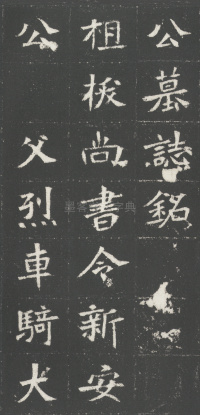 公墓誌銘
祖拔尚書令新安
公父烈車騎大